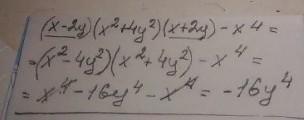 (x-2y)(x²+4y²)(x+2y)-x⁴=
=(x²-4y²)(x²+4y²)-x⁴=
=x⁴-16y⁴-x⁴=-16y⁴